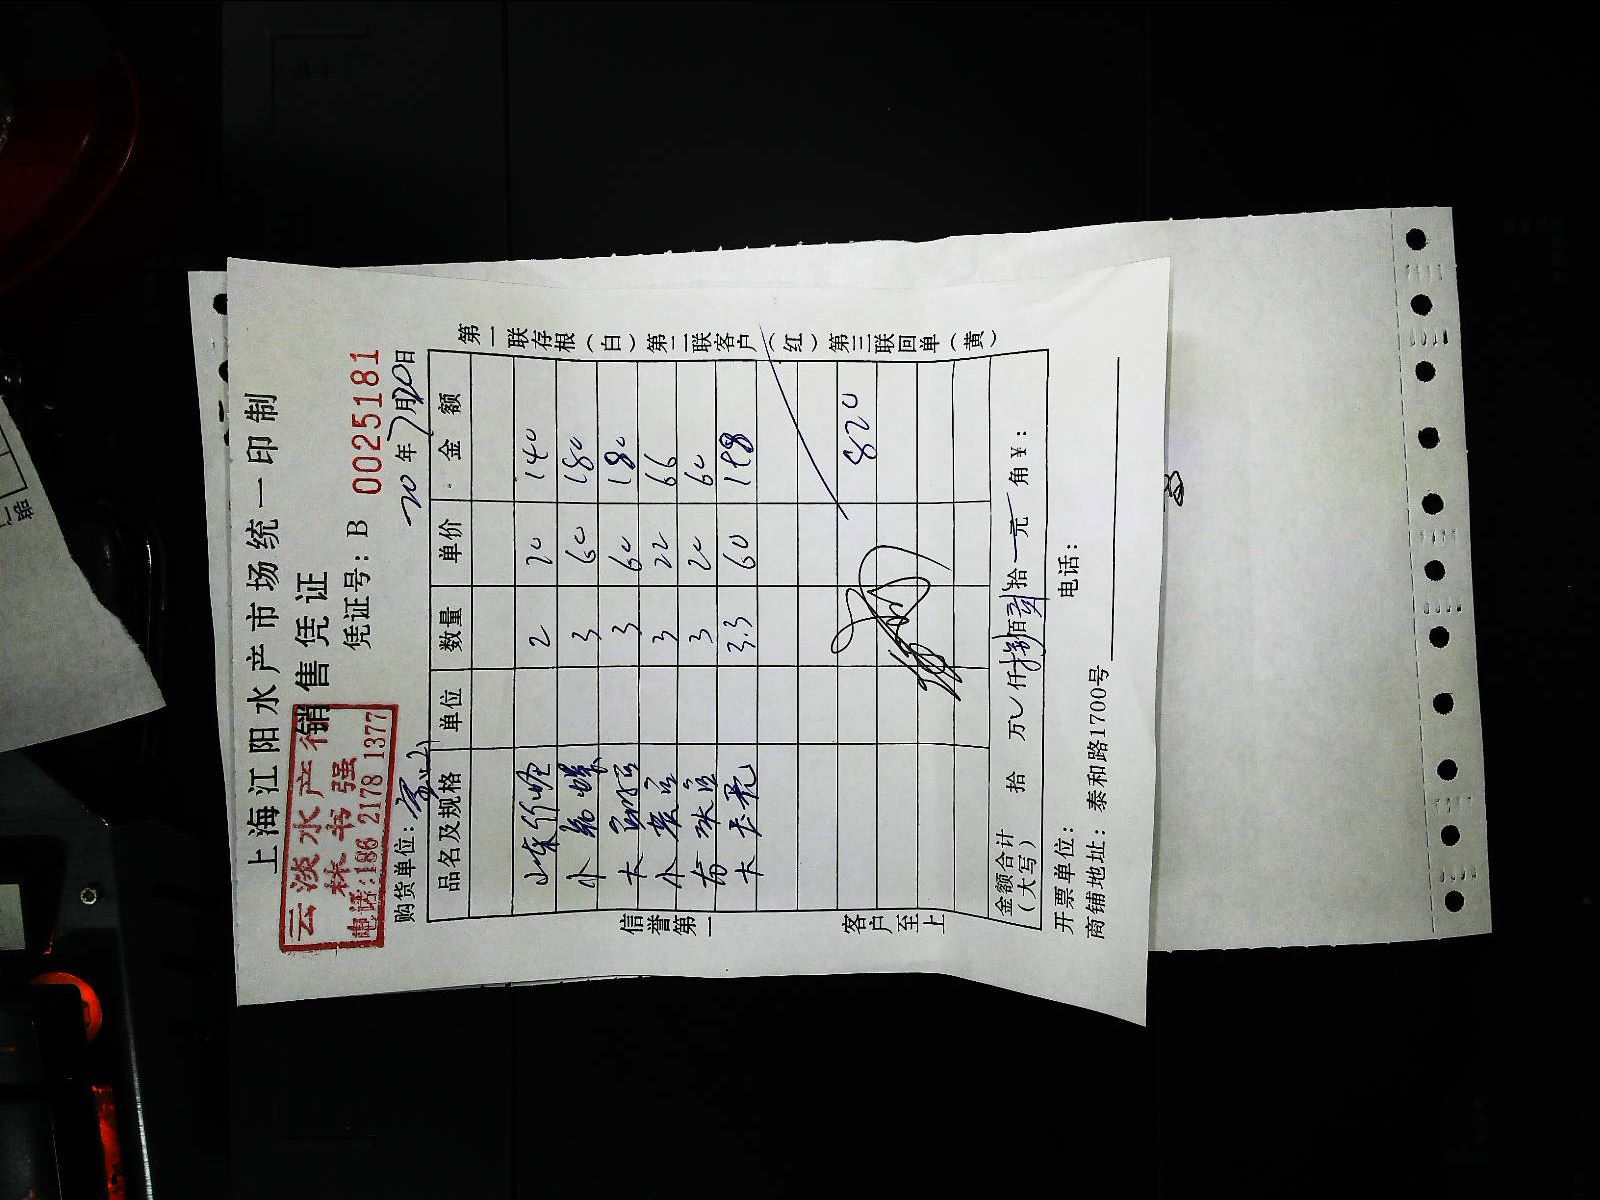 上海江阳水产市场统一印制
销售凭证
云淡水产行
林书强
电话:186 2178 1377
凭证号：B 0025181
购货单位：
20年7月20日
品名及规格 单位 数量 单价 金额
2 70 140
小 3 60 180
大 3 60 180
小 3 22 66
3 20 60
大 3.3 60 198
820
金额合计（大写） 拾 万 仟捌佰贰拾 元 角 ¥：
开票单位： 电话：
商铺地址：泰和路1700号
信誉第一
客户至上
第一联存根（白）第二联客户（红）第三联回单（黄）